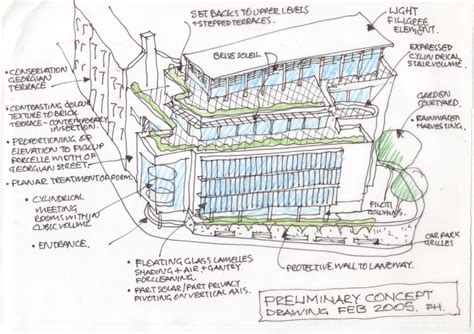 SET BACKS TO UPPER LEVELS
+ STEPPED TERRACES.
LIGHT
FILIGREE
ELEMENT.
BRISE SOLEIL
EXPRESSED
CYLINDRICAL
STAIR VOLUME.
GARDEN
COURTYARD.
RAINWATER
HARVESTING.
• CONSERVATION
GEORGIAN
TERRACE
• CONTRASTING COLOUR
TEXTURE TO BRICK
TERRACE - CONTEMPORARY
INSERTION.
• PROPORTIONING OF
ELEVATION TO PICK UP
PARCELLE WIDTH OF
GEORGIAN STREET.
• PLANAR TREATMENT OF FORM.
• CYLINDRICAL
MEETING
ROOMS WITHIN
CUBIC VOLUME
• ENTRANCE.
PILOTI
COLUMNS.
CAR PARK
GRILLES
• FLOATING GLASS LAMELLES
SHADING + AIR + GANTRY
FOR CLEANING.
• PART SOLAR/PART PRIVACY
PIVOTING ON VERTICAL AXIS.
PROTECTIVE WALL TO LANEWAY.
PRELIMINARY CONCEPT
DRAWING FEB 2005. FH.